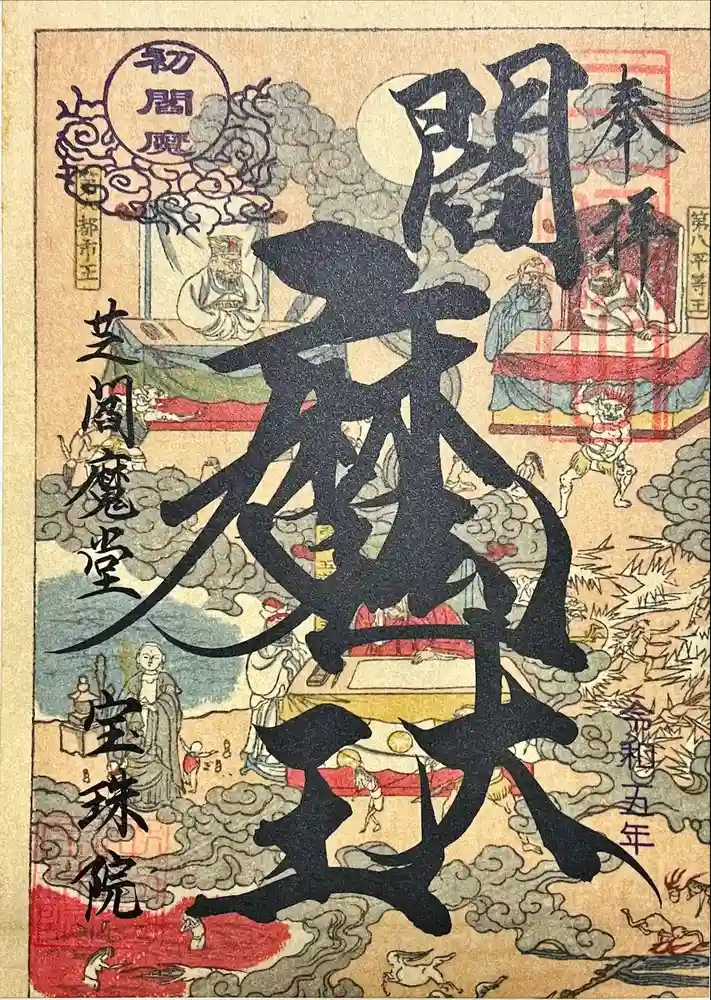 奉拝
第八平等王
令和五年
閻魔大王
初閻魔
都市王
芝閻魔堂 宝珠院